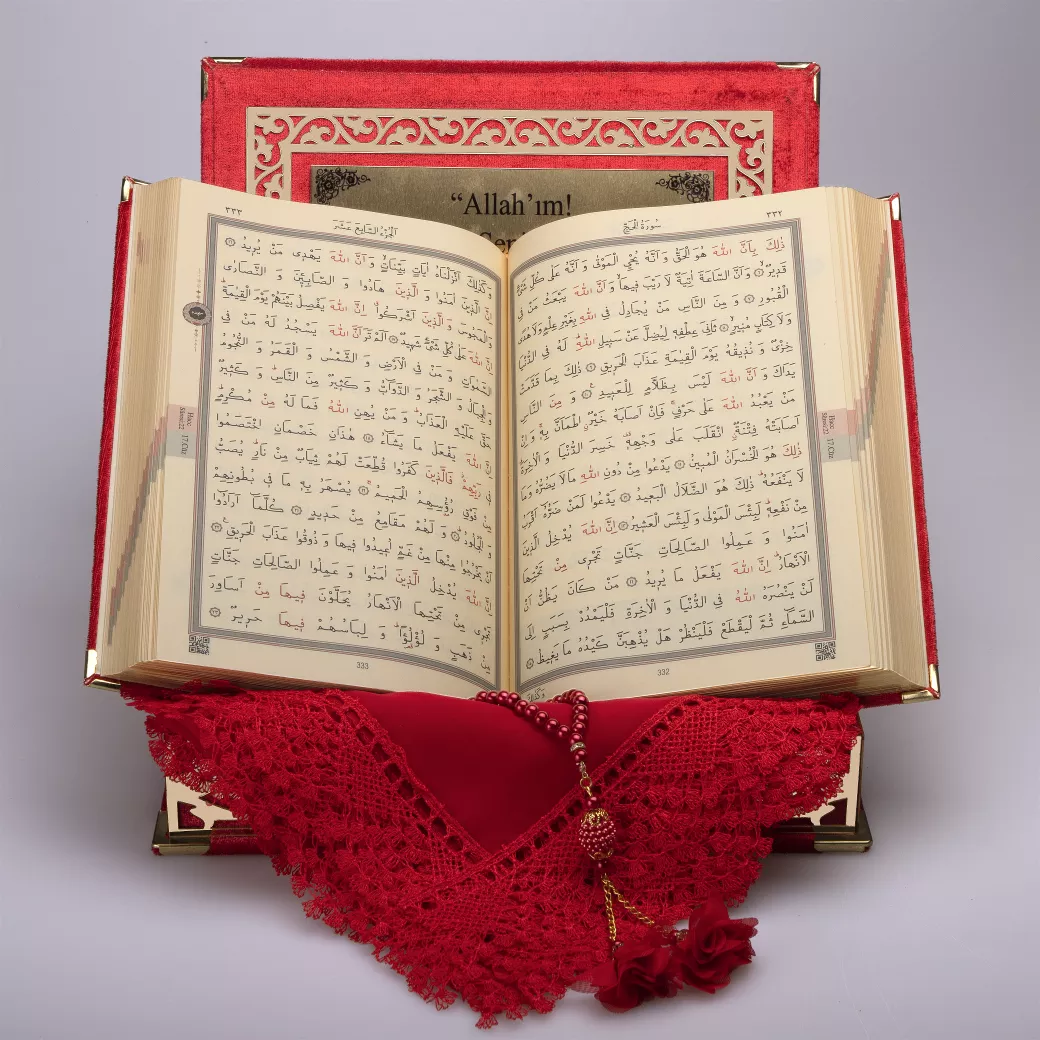 “Allah’ım!
٣٣٢
سُورَةُ الْحَجِّ
ذٰلِكَ بِاَنَّ اللّٰهَ هُوَ الْحَقُّ وَاَنَّهُ يُحْيِ الْمَوْتٰى وَاَنَّهُ عَلٰى كُلِّ شَيْءٍ
قَدِيرٌ ﴿٦﴾ وَاَنَّ السَّاعَةَ اٰتِيَةٌ لَا رَيْبَ فِيهَا وَاَنَّ اللّٰهَ يَبْعَثُ مَنْ فِي
الْقُبُورِ ﴿٧﴾ وَمِنَ النَّاسِ مَنْ يُجَادِلُ فِي اللّٰهِ بِغَيْرِ عِلْمٍ وَلَا هُدًى
وَلَا كِتَابٍ مُنِيرٍ ﴿٨﴾ ثَانِيَ عِطْفِهِ لِيُضِلَّ عَنْ سَبِيلِ اللّٰهِ لَهُ فِي الدُّنْيَا
خِزْيٌ وَنُذِيقُهُ يَوْمَ الْقِيٰمَةِ عَذَابَ الْحَرِيقِ ﴿٩﴾ ذٰلِكَ بِمَا قَدَّمَتْ
يَدَاكَ وَاَنَّ اللّٰهَ لَيْسَ بِظَلَّامٍ لِلْعَبِيدِ ﴿١٠﴾ وَمِنَ النَّاسِ
مَنْ يَعْبُدُ اللّٰهَ عَلٰى حَرْفٍ فَاِنْ اَصَابَهُ خَيْرٌ اطْمَاَنَّ بِهِ وَاِنْ
اَصَابَتْهُ فِتْنَةٌ انْقَلَبَ عَلٰى وَجْهِهِ خَسِرَ الدُّنْيَا وَالْاٰخِرَةَ
ذٰلِكَ هُوَ الْخُسْرَانُ الْمُبِينُ ﴿١١﴾ يَدْعُوا مِنْ دُونِ اللّٰهِ مَا لَا يَضُرُّهُ وَمَا
لَا يَنْفَعُهُ ذٰلِكَ هُوَ الضَّلَالُ الْبَعِيدُ ﴿١٢﴾ يَدْعُوا لَمَنْ ضَرُّهُ اَقْرَبُ
مِنْ نَفْعِهِ لَبِئْسَ الْمَوْلٰى وَلَبِئْسَ الْعَشِيرُ ﴿١٣﴾ اِنَّ اللّٰهَ يُدْخِلُ الَّذِينَ
اٰمَنُوا وَعَمِلُوا الصَّالِحَاتِ جَنَّاتٍ تَجْرِي مِنْ تَحْتِهَا
الْاَنْهَارُ اِنَّ اللّٰهَ يَفْعَلُ مَا يُرِيدُ ﴿١٤﴾ مَنْ كَانَ يَظُنُّ اَنْ
لَنْ يَنْصُرَهُ اللّٰهُ فِي الدُّنْيَا وَالْاٰخِرَةِ فَلْيَمْدُدْ بِسَبَبٍ اِلَى
السَّمَاءِ ثُمَّ لْيَقْطَعْ فَلْيَنْظُرْ هَلْ يُذْهِبَنَّ كَيْدُهُ مَا يَغِيظُ ﴿١٥﴾
وَكَذٰلِكَ
332
Hacc
Sûresi:22
17.Cüz
٣٣٣
اَلْجُزْءُ السَّابِعَ عَشَرَ
وَكَذٰلِكَ اَنْزَلْنَاهُ اٰيَاتٍ بَيِّنَاتٍ وَاَنَّ اللّٰهَ يَهْدِي مَنْ يُرِيدُ ﴿١٦﴾
اِنَّ الَّذِينَ اٰمَنُوا وَالَّذِينَ هَادُوا وَالصَّابِئِينَ وَالنَّصَارٰى
وَالْمَجُوسَ وَالَّذِينَ اَشْرَكُوا اِنَّ اللّٰهَ يَفْصِلُ بَيْنَهُمْ يَوْمَ الْقِيٰمَةِ
اِنَّ اللّٰهَ عَلٰى كُلِّ شَيْءٍ شَهِيدٌ ﴿١٧﴾ اَلَمْ تَرَ اَنَّ اللّٰهَ يَسْجُدُ لَهُ مَنْ فِي
السَّمٰوَاتِ وَمَنْ فِي الْاَرْضِ وَالشَّمْسُ وَالْقَمَرُ وَالنُّجُومُ
وَالْجِبَالُ وَالشَّجَرُ وَالدَّوَابُّ وَكَثِيرٌ مِنَ النَّاسِ وَكَثِيرٌ
حَقَّ عَلَيْهِ الْعَذَابُ وَمَنْ يُهِنِ اللّٰهُ فَمَا لَهُ مِنْ مُكْرِمٍ
اِنَّ اللّٰهَ يَفْعَلُ مَا يَشَاءُ ﴿١٨﴾ هٰذَانِ خَصْمَانِ اخْتَصَمُوا
فِي رَبِّهِمْ فَالَّذِينَ كَفَرُوا قُطِّعَتْ لَهُمْ ثِيَابٌ مِنْ نَارٍ يُصَبُّ
مِنْ فَوْقِ رُؤُسِهِمُ الْحَمِيمُ ﴿١٩﴾ يُصْهَرُ بِهِ مَا فِي بُطُونِهِمْ
وَالْجُلُودُ ﴿٢٠﴾ وَلَهُمْ مَقَامِعُ مِنْ حَدِيدٍ ﴿٢١﴾ كُلَّمَا اَرَادُوا
اَنْ يَخْرُجُوا مِنْهَا مِنْ غَمٍّ اُعِيدُوا فِيهَا وَذُوقُوا عَذَابَ الْحَرِيقِ ﴿٢٢﴾
اِنَّ اللّٰهَ يُدْخِلُ الَّذِينَ اٰمَنُوا وَعَمِلُوا الصَّالِحَاتِ جَنَّاتٍ
تَجْرِي مِنْ تَحْتِهَا الْاَنْهَارُ يُحَلَّوْنَ فِيهَا مِنْ اَسَاوِرَ
مِنْ ذَهَبٍ وَلُؤْلُؤًا وَلِبَاسُهُمْ فِيهَا حَرِيرٌ ﴿٢٣﴾
333
Hacc
Sûresi:22
17.Cüz